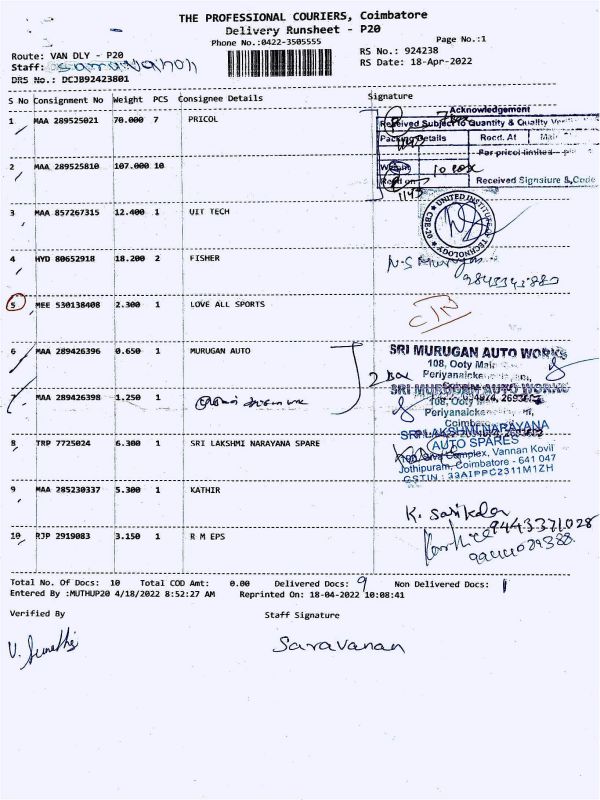 THE PROFESSIONAL COURIERS, Coimbatore
Delivery Runsheet - P20
Phone No.:0422-3505555
Page No.:1
Route: VAN DLY - P20
RS No.: 924238
Staff: Saravanan
RS Date: 18-Apr-2022
DRS No.: DCJB92423801
S No Consignment No Weight PCS Consignee Details Signature
1 MAA 289525021 70.000 7 PRICOL
Acknowledgement
Received Subject to Quantity & Quality
Packing Details Recd. At
For pricol limited
2 MAA 289525810 107.000 10
10 box
Received Signature & Code
1143
3 MAA 857267315 12.400 1 UIT TECH
UNITED INSTITUTE OF TECHNOLOGY CBE-20
4 HYD 80652918 18.200 2 FISHER
5 MEE 530138408 2.300 1 LOVE ALL SPORTS
6 MAA 289426396 0.650 1 MURUGAN AUTO
2 Box
SRI MURUGAN AUTO WORKS
108, Ooty Main
Periyanaicke
7 MAA 289426398 1.250 1
SRI MURUGAN AUTO WORKS
108, Ooty
Periyanaicke
8 TRP 7725024 6.300 1 SRI LAKSHMI NARAYANA SPARE
SRI LAKSHMI NARAYANA
AUTO SPARES
Complex, Vannan Kovil
Jothipuram, Coimbatore - 641 047
GSTIN : 33AIPPC2311M1ZH
9 MAA 285230337 5.300 1 KATHIR
K. Sasikala
9443371028
10 RJP 2919083 3.150 1 R M EPS
Total No. Of Docs: 10 Total COD Amt: 0.00 Delivered Docs: 9 Non Delivered Docs: 1
Entered By :MUTHUP20 4/18/2022 8:52:27 AM Reprinted On: 18-04-2022 10:08:41
Verified By Staff Signature
Saravanan